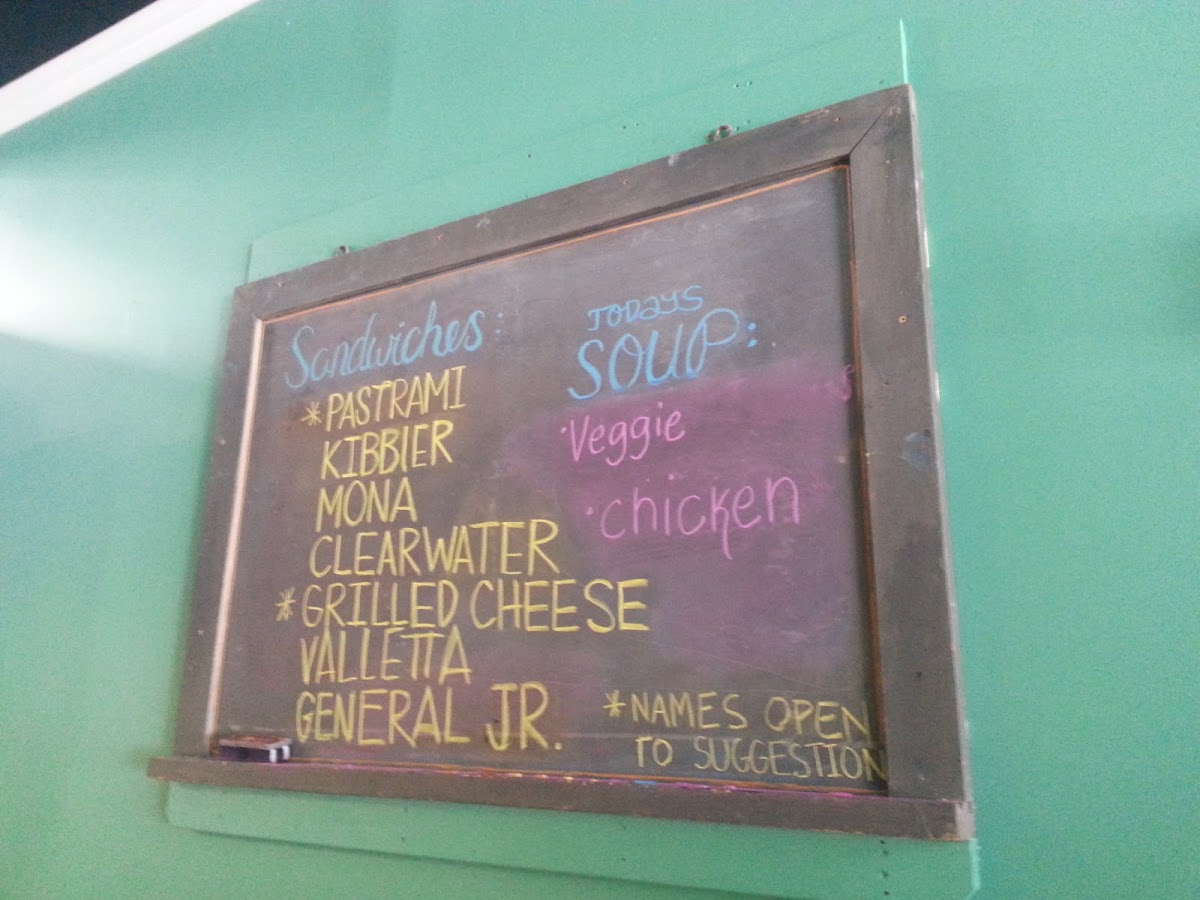 Sandwiches:
*PASTRAMI
KIBBIER
MONA
CLEARWATER
*GRILLED CHEESE
VALLETTA
GENERAL JR.
TODAYS
SOUP:
·Veggie
·chicken
*NAMES OPEN
TO SUGGESTION